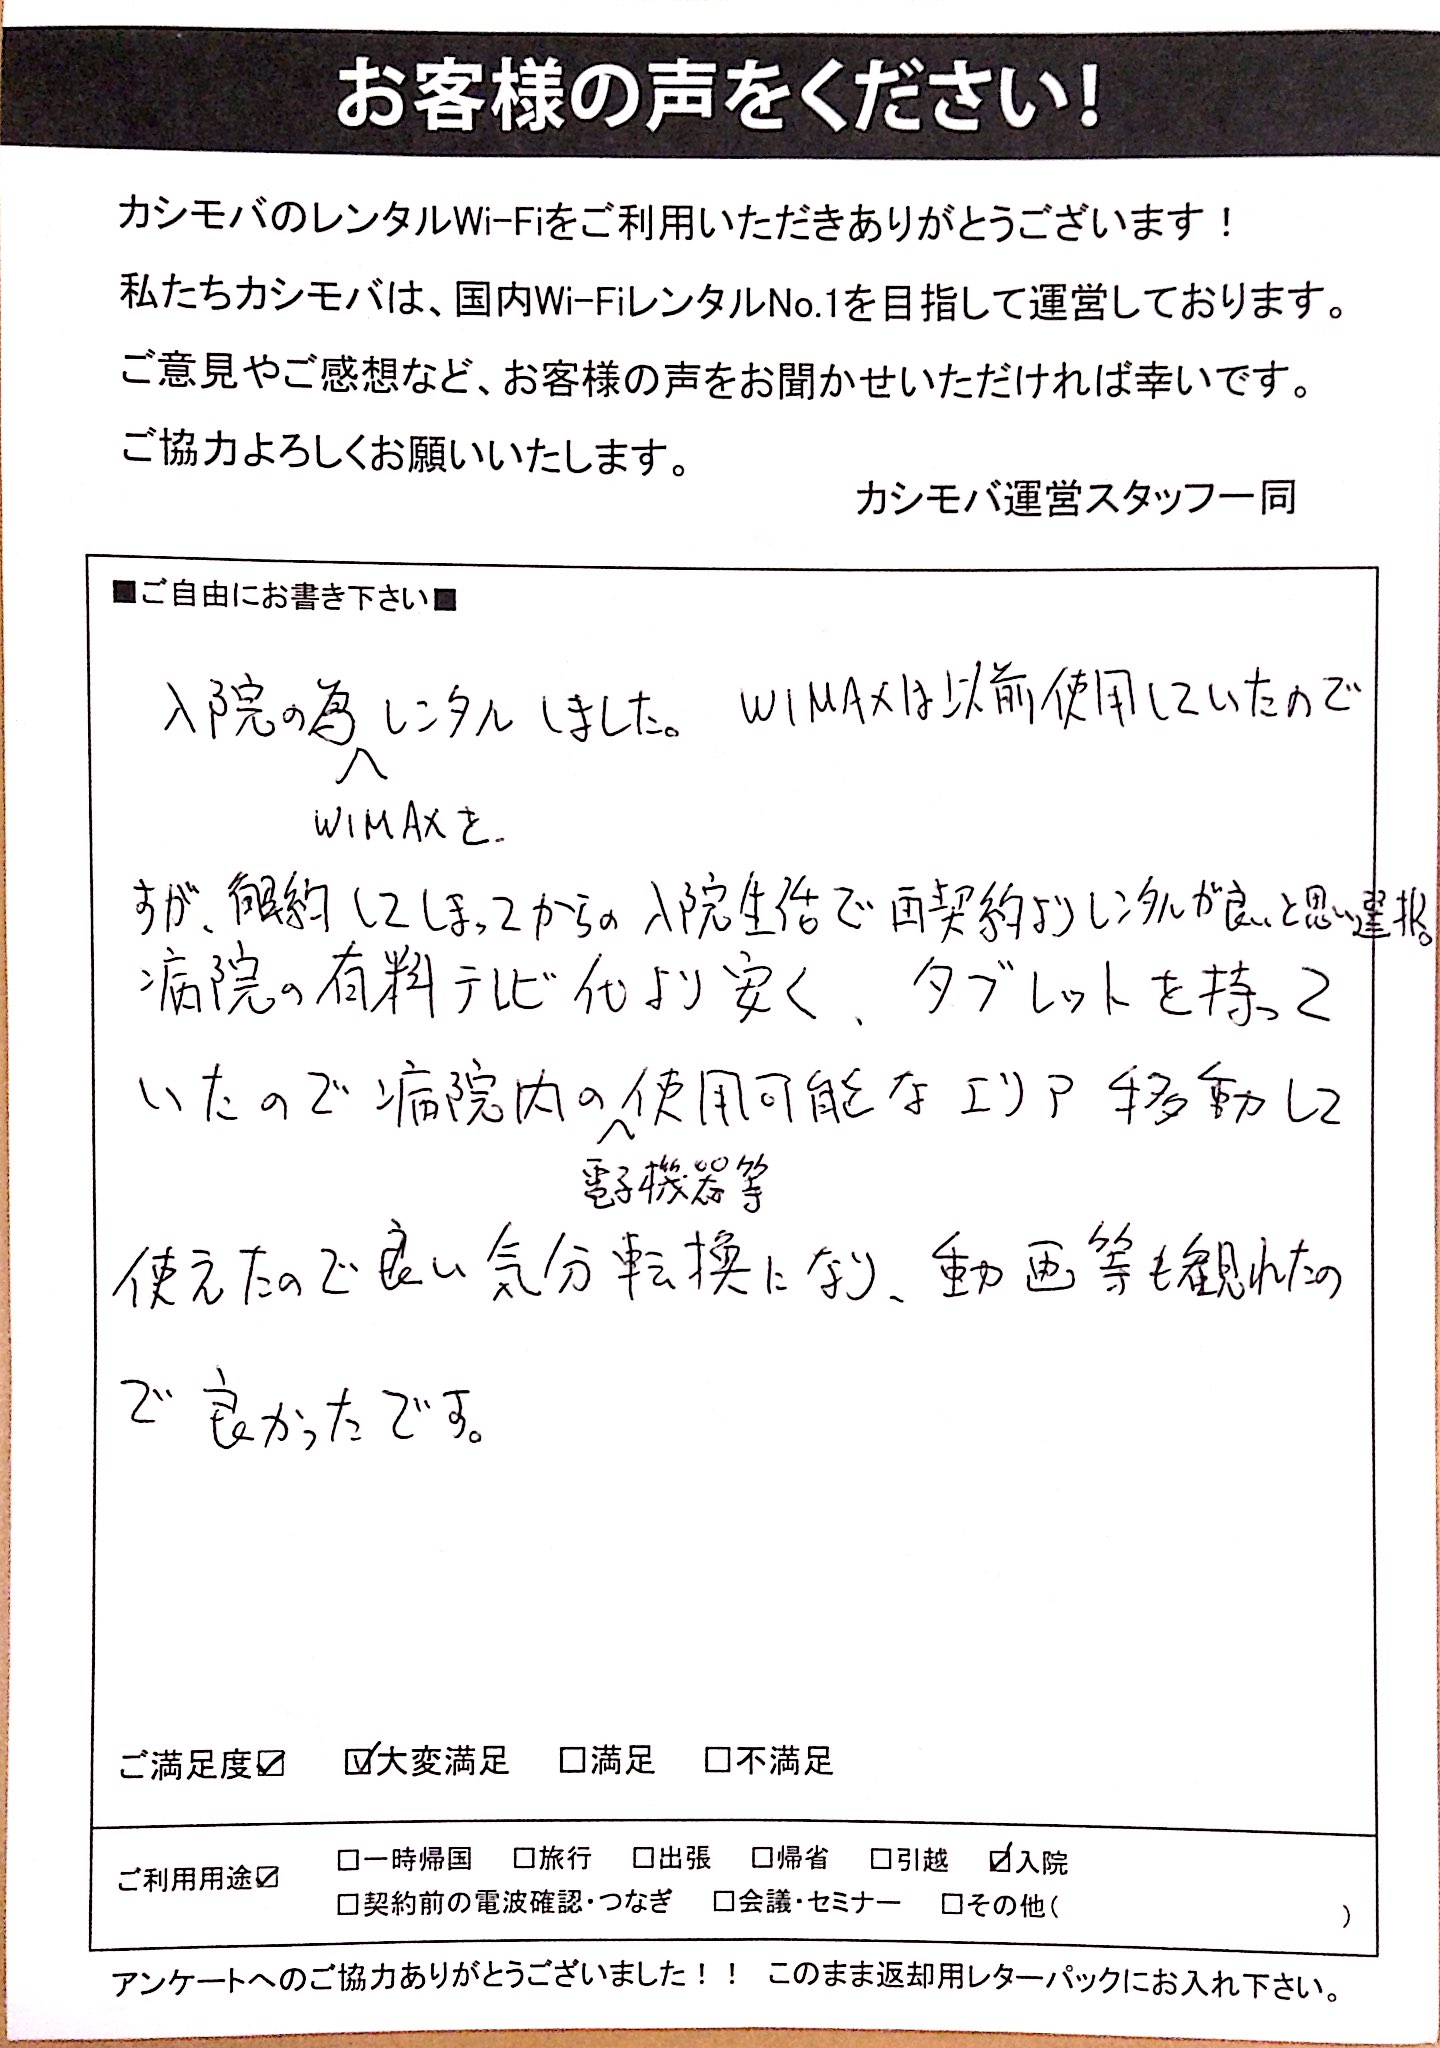 お客様の声をください!
カシモバのレンタルWi-Fiをご利用いただきありがとうございます！
私たちカシモバは、国内Wi-FiレンタルNo.1を目指して運営しております。
ご意見やご感想など、お客様の声をお聞かせいただければ幸いです。
ご協力よろしくお願いいたします。
カシモバ運営スタッフ一同
■ご自由にお書き下さい■
入院の為レンタルしました。 WIMAXは以前使用していたので
WIMAXを
すが、解約してしまってからの入院生活で再契約よりレンタルが良いと思い選択。
病院の有料テレビ代より安く、タブレットを持って
いたので病院内の使用可能なエリア移動して
電子機器等
使えたので良い気分転換になり、動画等も観れたの
で良かったです。
ご満足度☑ ☑大変満足 □満足 □不満足
ご利用用途☑ □一時帰国 □旅行 □出張 □帰省 □引越 ☑入院
□契約前の電波確認・つなぎ □会議・セミナー □その他( )
アンケートへのご協力ありがとうございました！！ このまま返却用レターパックにお入れ下さい。